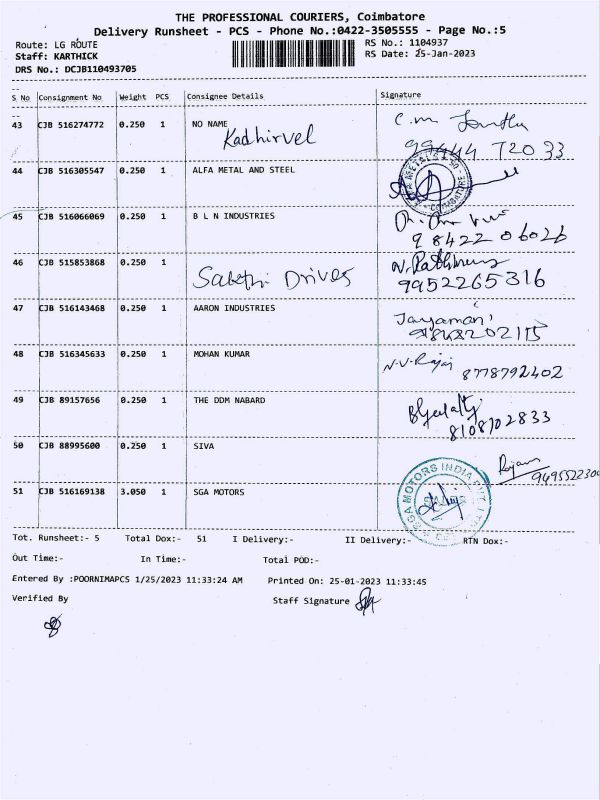 THE PROFESSIONAL COURIERS, Coimbatore
Delivery Runsheet - PCS - Phone No.:0422-3505555 - Page No.:5
Route: LG ROUTE RS No.: 1104937
Staff: KARTHICK RS Date: 25-Jan-2023
DRS No.: DCJB110493705
S No Consignment No Weight PCS Consignee Details Signature
43 CJB 516274772 0.250 1 NO NAME C.M
Kadhirvel
99444 72033
44 CJB 516305547 0.250 1 ALFA METAL AND STEEL
COIMBATORE
45 CJB 516066069 0.250 1 B L N INDUSTRIES
98422 06026
46 CJB 515853868 0.250 1
Sakthi Drives
9952265316
47 CJB 516143468 0.250 1 AARON INDUSTRIES
Jayamani
48 CJB 516345633 0.250 1 MOHAN KUMAR N.V.Rajai
8778792402
49 CJB 89157656 0.250 1 THE DDM NABARD
8108702833
50 CJB 88995600 0.250 1 SIVA
51 CJB 516169138 3.050 1 SGA MOTORS
SGA MOTORS INDIA PVT. LTD
Tot. Runsheet:- 5 Total Dox:- 51 I Delivery:- II Delivery:- RTN Dox:-
Out Time:- In Time:- Total POD:-
Entered By :POORNIMAPCS 1/25/2023 11:33:24 AM Printed On: 25-01-2023 11:33:45
Verified By Staff Signature